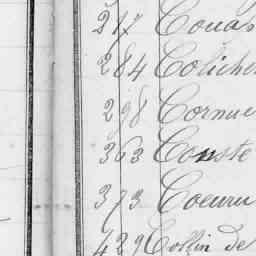 217 Couas
284 Colichen
298 Cornue
363 Conste
373 Coeuru
429 Collin de